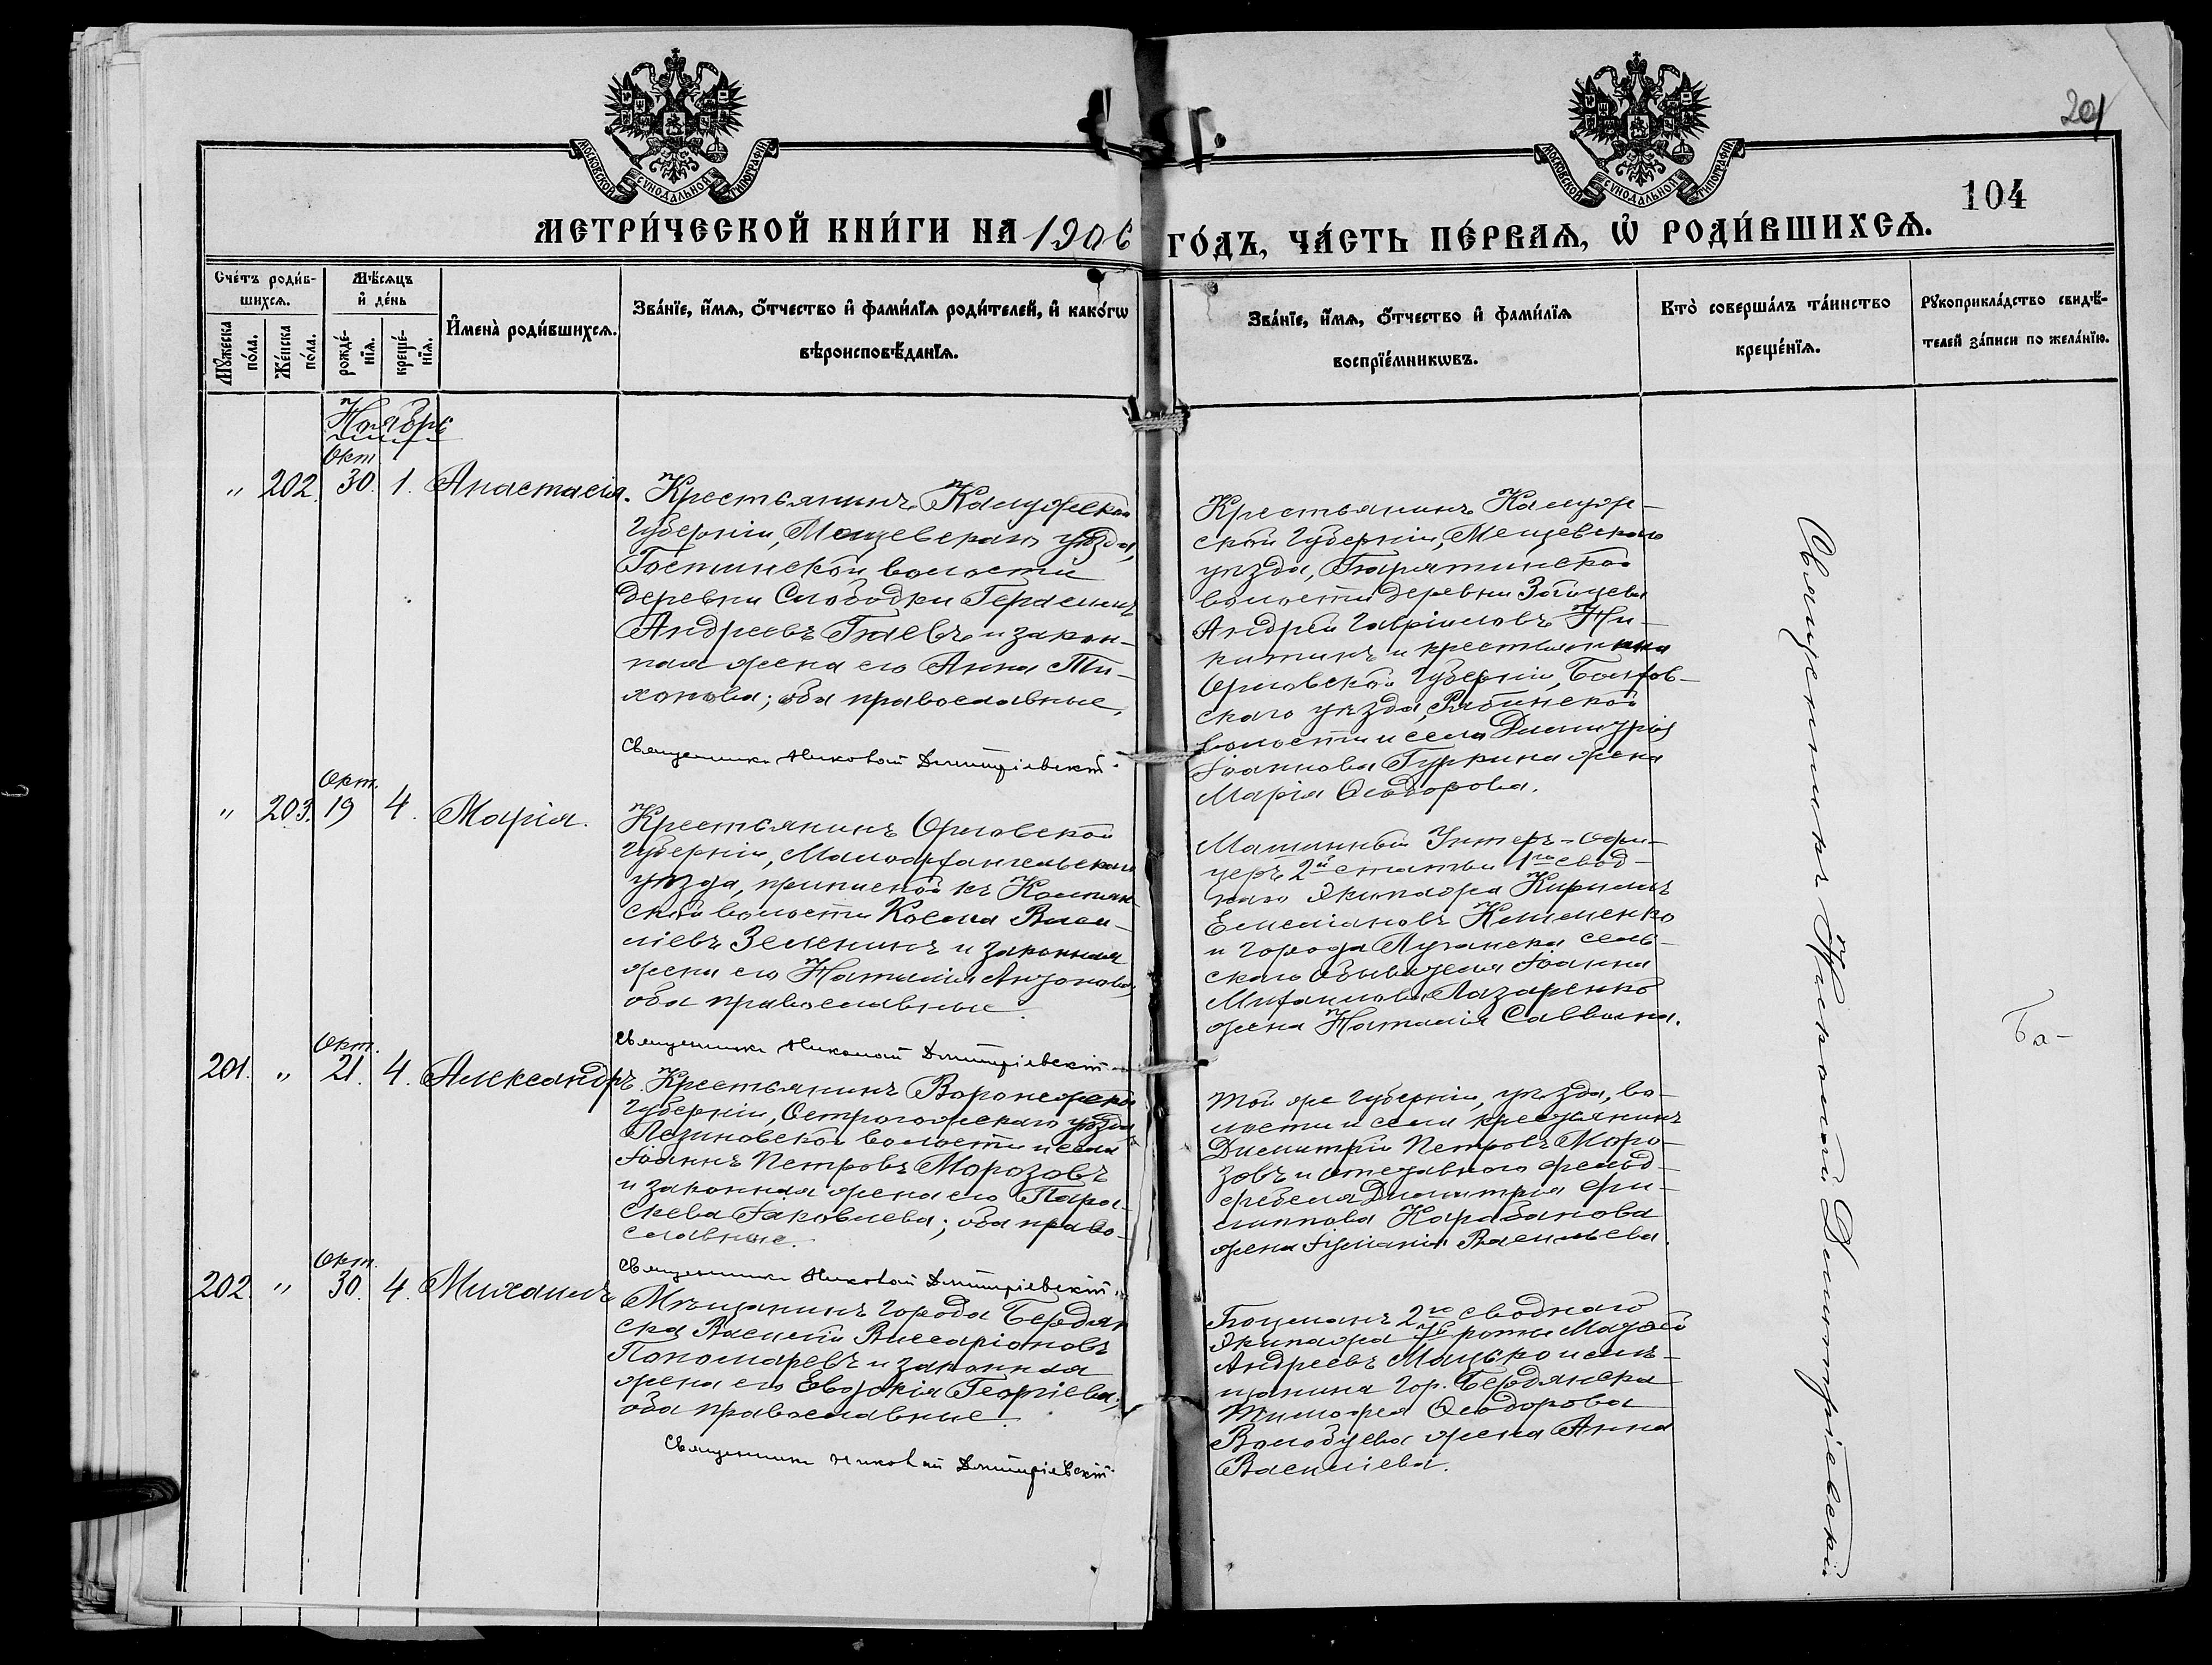 201
104
МОСКОВСКОЙ СѴНОДАЛЬНОЙ ТИПОГРАФІИ
МОСКОВСКОЙ СѴНОДАЛЬНОЙ ТИПОГРАФІИ
МЕТРИ́ЧЕСКОЙ КНИ́ГИ НА 1906 ГО́ДЪ, ЧА́СТЬ ПЕ́РВАѦ, Ѡ҆ РОДИ́ВШИХСѦ.
Сче́тъ роди́в-
шихсѧ.
Мꙋ́жеска по́ла.
Же́нска по́ла.
Мѣ́сѧцъ
и҆ де́нь
рожде́-
нїѧ.
креще́-
нїѧ.
И҆мена̀ роди́вшихсѧ.
Зва́нїе, и҆́мѧ, ѻ҆́тчество и҆ фами́лїѧ роди́телей, и҆ како́гѡ
вѣроисповѣ́данїѧ.
Зва́нїе, и҆́мѧ, ѻ҆́тчество и҆ фами́лїѧ
воспрїе́мникѡвъ.
Кто̀ соверша́лъ та́инство
креще́нїѧ.
Рꙋкоприкла́дство свидѣ́-
телей за́писи по жела́нїю.
Ноябрь
Окт.
„ 202. 30. 1. Анастасія.
Крестьянинъ Калужской
губерніи, Мещевскаго уѣзда,
волости
деревни Слободки Герасимъ
Андреевъ и закон-
ная жена его Анна Ти-
хонова; оба православные.
Священникъ Николай Димитріевскій.
Крестьянинъ Калуж-
ской губерніи, Мещевскаго
уѣзда,
волости деревни
Андрей Гавріиловъ Ни-
китинъ и крестьянина
Орловской губерніи, Болхов-
скаго уѣзда,
волости и села Димитрія
Іоаннова Туркина жена
Марія Ѳеодорова.
Окт.
„ 203. 19 4. Марія.
Крестьянинъ Орловской
губерніи, Малоархангельскаго
уѣзда, приписной къ
волости Косма Васи-
ліевъ Зеленинъ и законная
жена его Наталія Антонова,
оба православные.
Священникъ Николай Димитріевскій.
Машинный Унтеръ-офи-
церъ 2й статьи 1го свод-
наго экипажа Кириллъ
Емеліановъ Клименко
и города Луганска сель-
скаго обывателя Іоанна
Михаилова Лазаренко
жена Наталія Саввина.
Окт.
201. „ 21. 4. Александръ.
Крестьянинъ Воронежской
губерніи, Острогожскаго уѣзда
Лизиновской волости и села
Іоаннъ Петровъ Морозовъ
и законная жена его Пара-
скева Іаковлева; оба право-
славные.
Священникъ Николай Димитріевскій.
Той же губерніи, уѣзда, во-
лости и села крестьянинъ
Димитрій Петровъ Моро-
зовъ и отставного фельд-
фебеля Димитрія Фи-
липпова Карабанова
жена Іуліанія Васильева.
Окт.
202. „ 30. 4. Михаилъ
Мѣщанинъ города Бердян-
ска Василій Виссаріоновъ
Пономаревъ и законная
жена его Евдокія Георгіева;
оба православные.
Священникъ Николай Димитріевскій.
Боцманъ 2го своднаго
экипажа роты
Андреевъ Мацько и мѣ-
щанина гор. Бердянска
Тимофея Ѳеодорова
жена Анна
Василіева.
Священникъ Николай Димитріевскій
Ба-